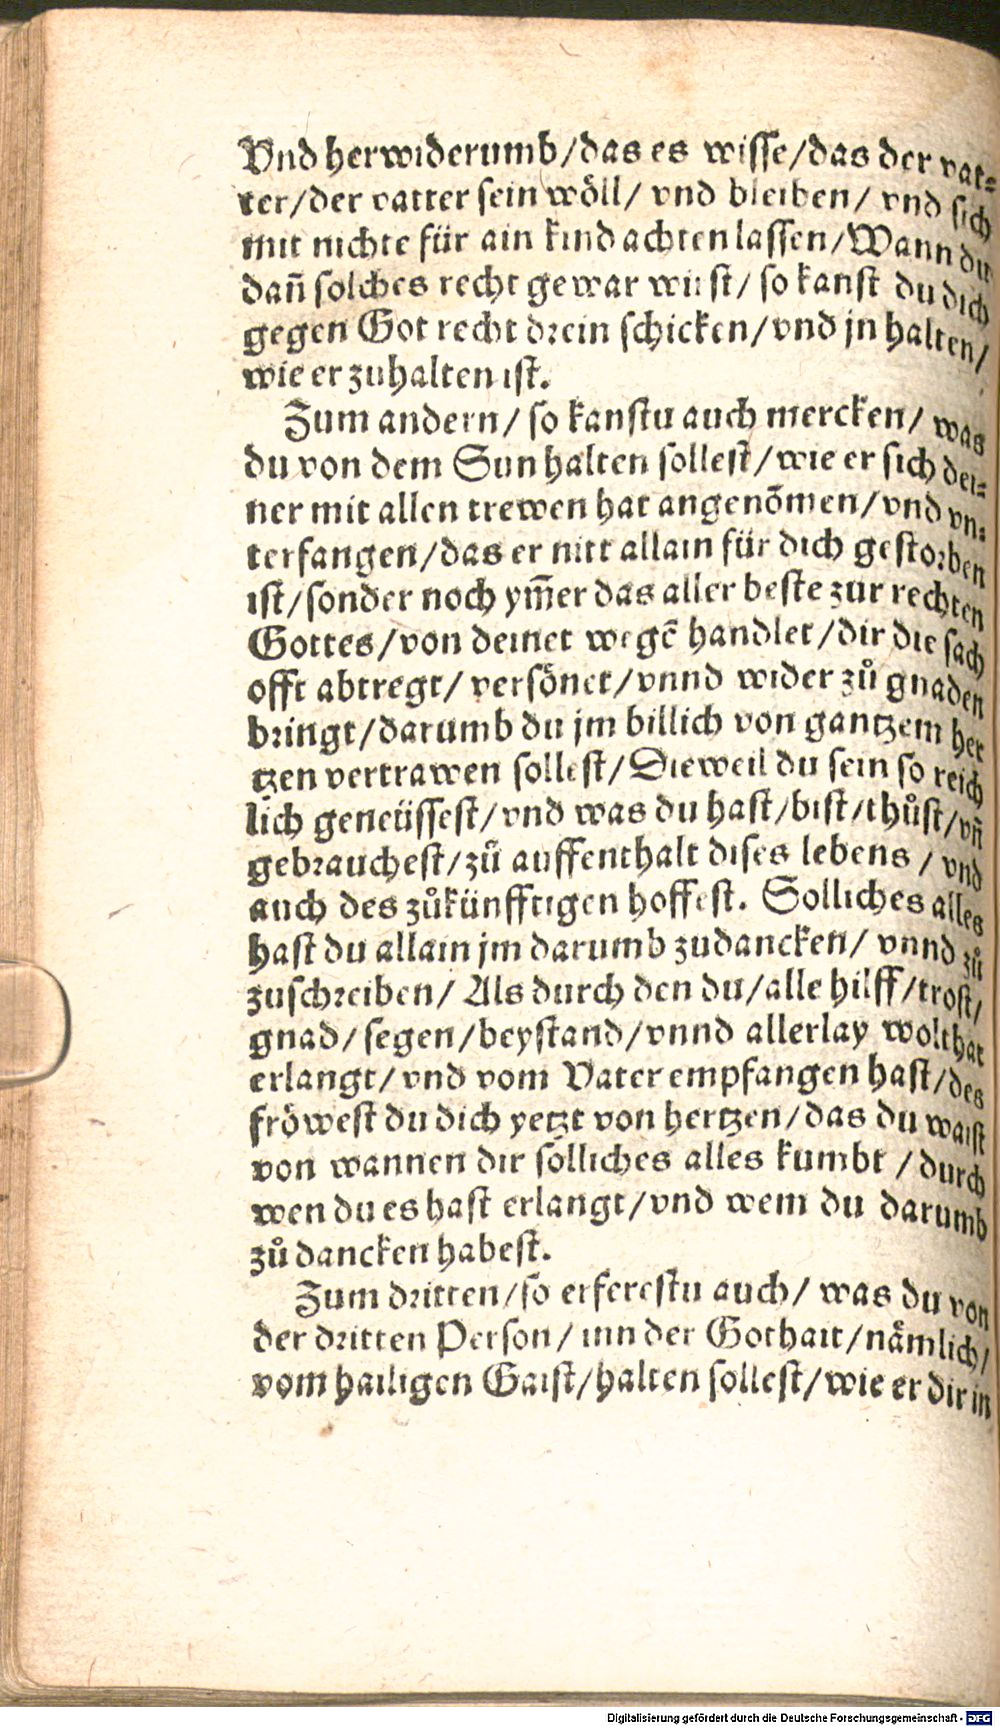 Vnd herwiderumb/das es wisse/das der vat-
ter/der vatter sein wöll/ vnd bleiben/ vnd sich
mit nichte für ain kind achten lassen/Wann du
dañ solches recht gewar wirst/ so kanst du dich
gegen Got recht drein schicken/vnd jn halten/
wie er zuhalten ist.
Zum andern/ so kanstu auch mercken/ was
du von dem Sun halten sollest/wie er sich dei-
ner mit allen trewen hat angenõmen/vnd vn-
terfangen/das er nitt allain für dich gestorben
ist/sonder noch ym̃er das aller beste zur rechten
Gottes/von deinet wegẽ handlet/dir die sach
offt abtregt/ versönet/vnnd wider zů gnaden
bringt/darumb du jm billich von gantzem her
tzen vertrawen sollest/Dieweil du sein so reich
lich geneüssest/vnd was du hast/bist/thůst/vñ
gebrauchest/zů auffenthalt dises lebens / vnd
auch des zůkünfftigen hoffest. Solliches alles
hast du allain jm darumb zudancken/ vnnd zů
zuschreiben/ Als durch den du/alle hilff/trost/
gnad/segen/beystand/vnnd allerlay wolthat
erlangt/vnd vom Vater empfangen hast/des
fröwest du dich yetzt von hertzen/das du waist
von wannen dir sölliches alles kumbt /durch
wen du es hast erlangt/vnd wem du darumb
zů dancken habest.
Zum dritten/so erferestu auch/ was du von
der dritten Person/ inn der Gothait/nämlich/
vom hailigen Gaist/halten sollest/wie er dir in
Digitalisierung gefördert durch die Deutsche Forschungsgemeinschaft - DFG